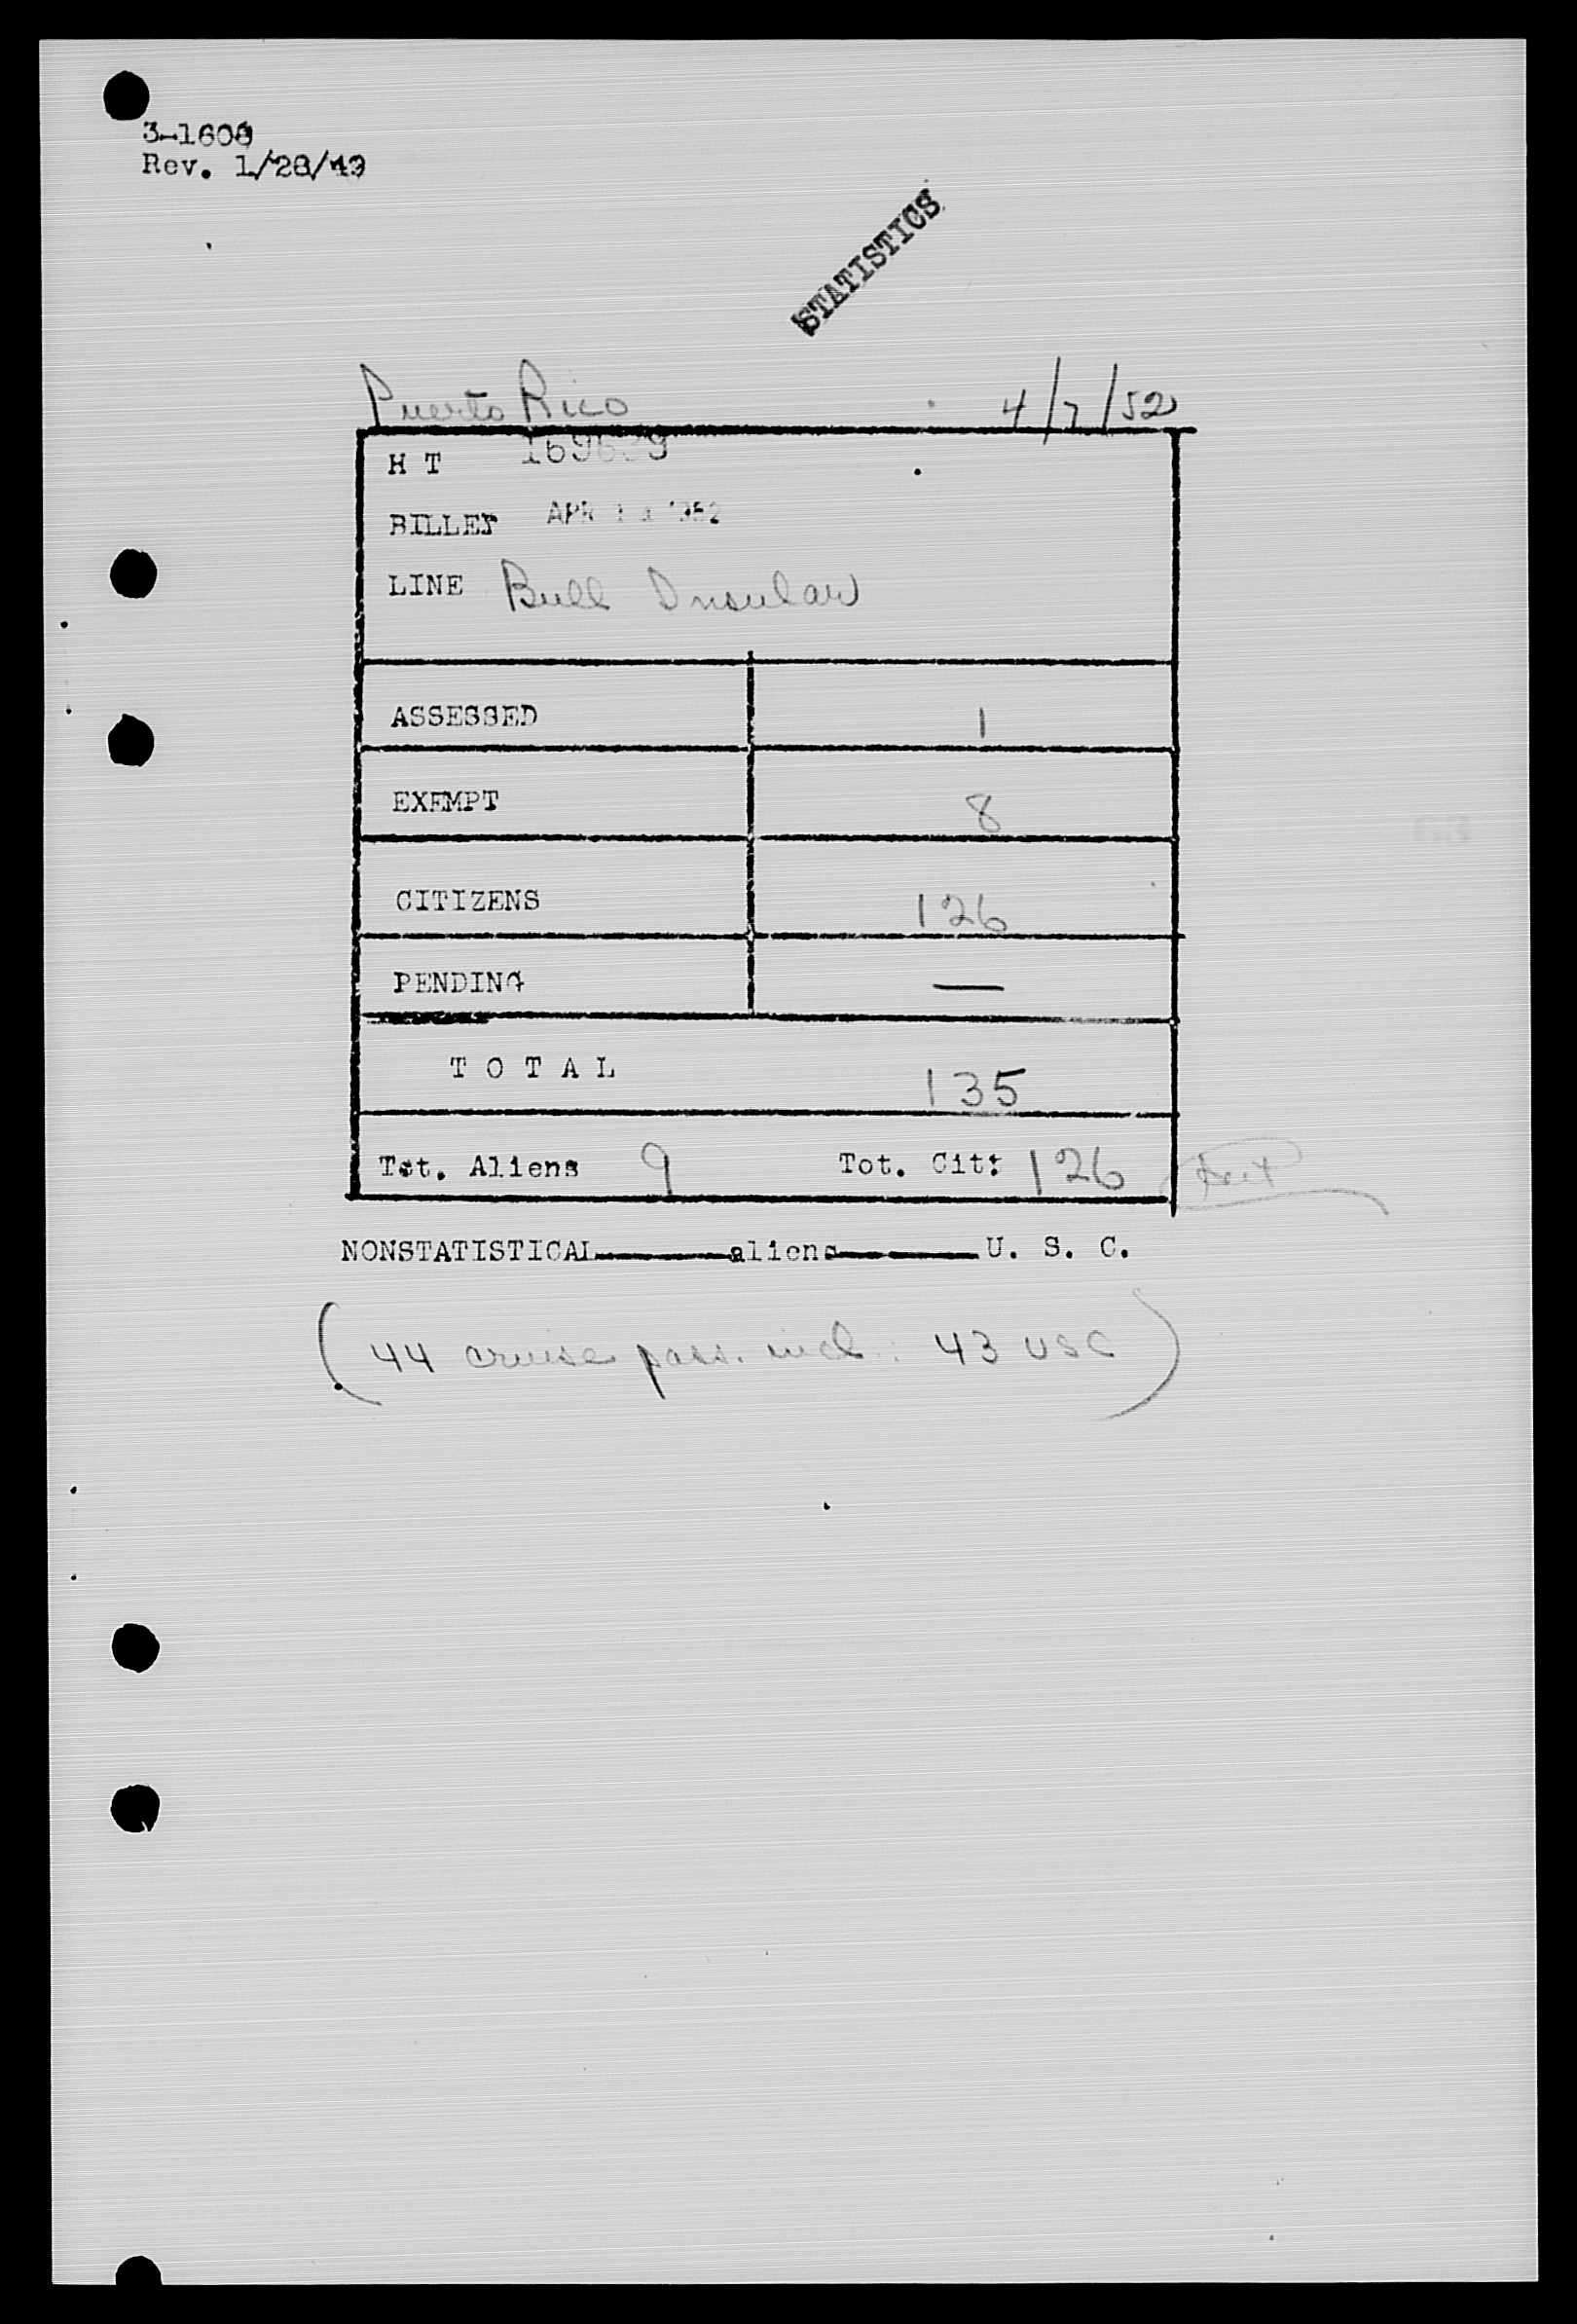 3-1608
Rev. 1/28/49
STATISTICS
Puerto Rico 4/7/52
H T
BILLET APR 1952
LINE Bull Insular
ASSESSED 1
EXEMPT 8
CITIZENS 126
PENDING —
T O T A L 135
Tot. Aliens 9 Tot. Cit: 126
NONSTATISTICAL aliens U. S. C.
(44 cruise pass. incl: 43 USC)